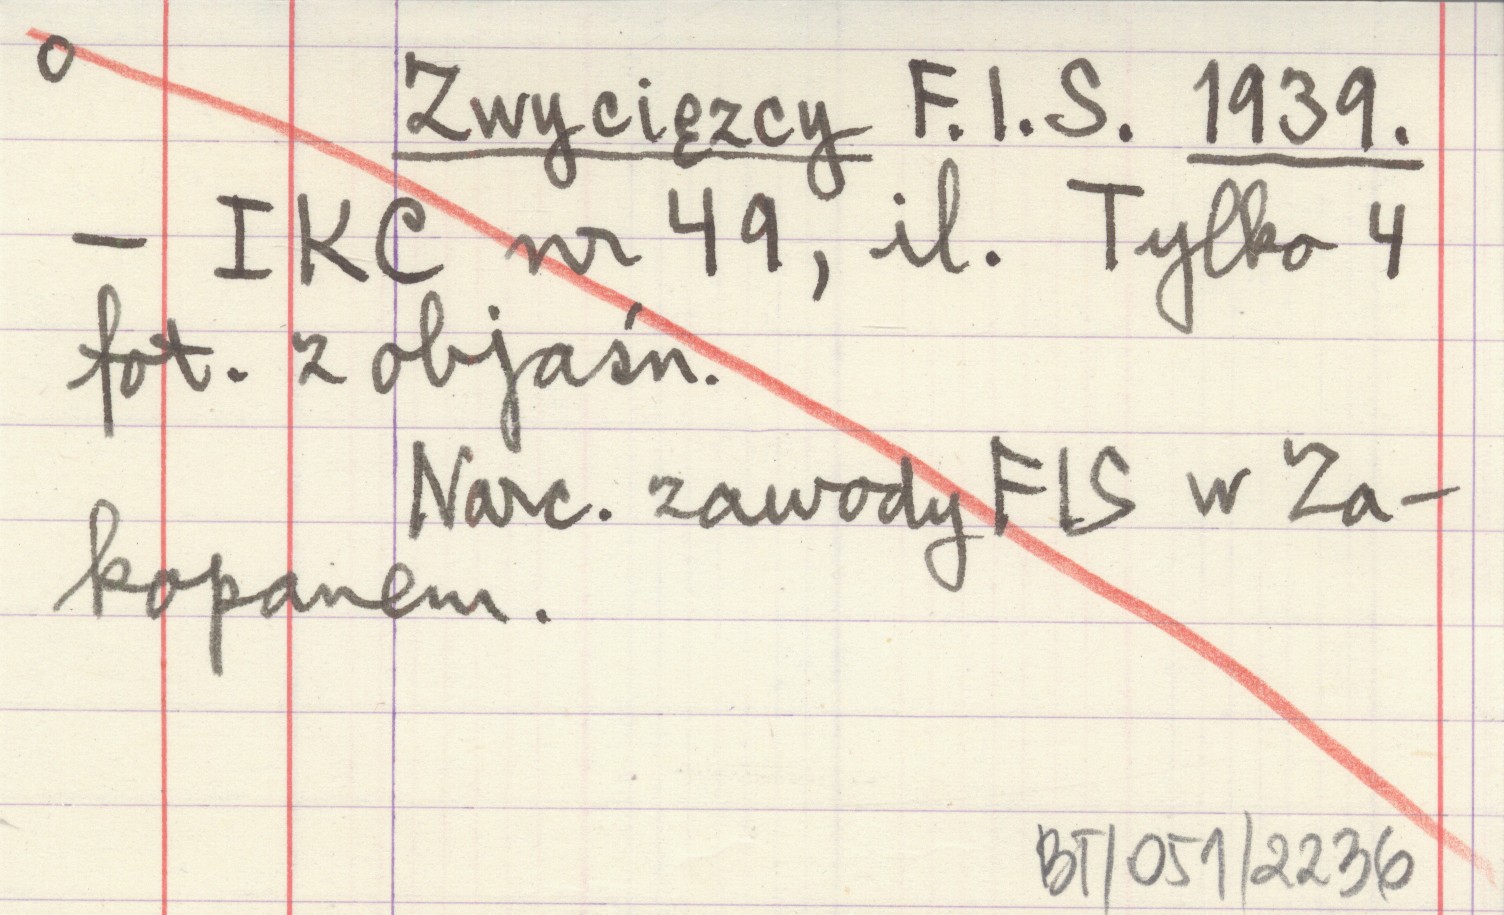 o
Zwycięzcy F.I.S. 1939.
– IKC nr 49, il. Tylko 4
fot. z objaśn.
Narc. zawody FIS w Za-
kopanem.
BT/051/2236